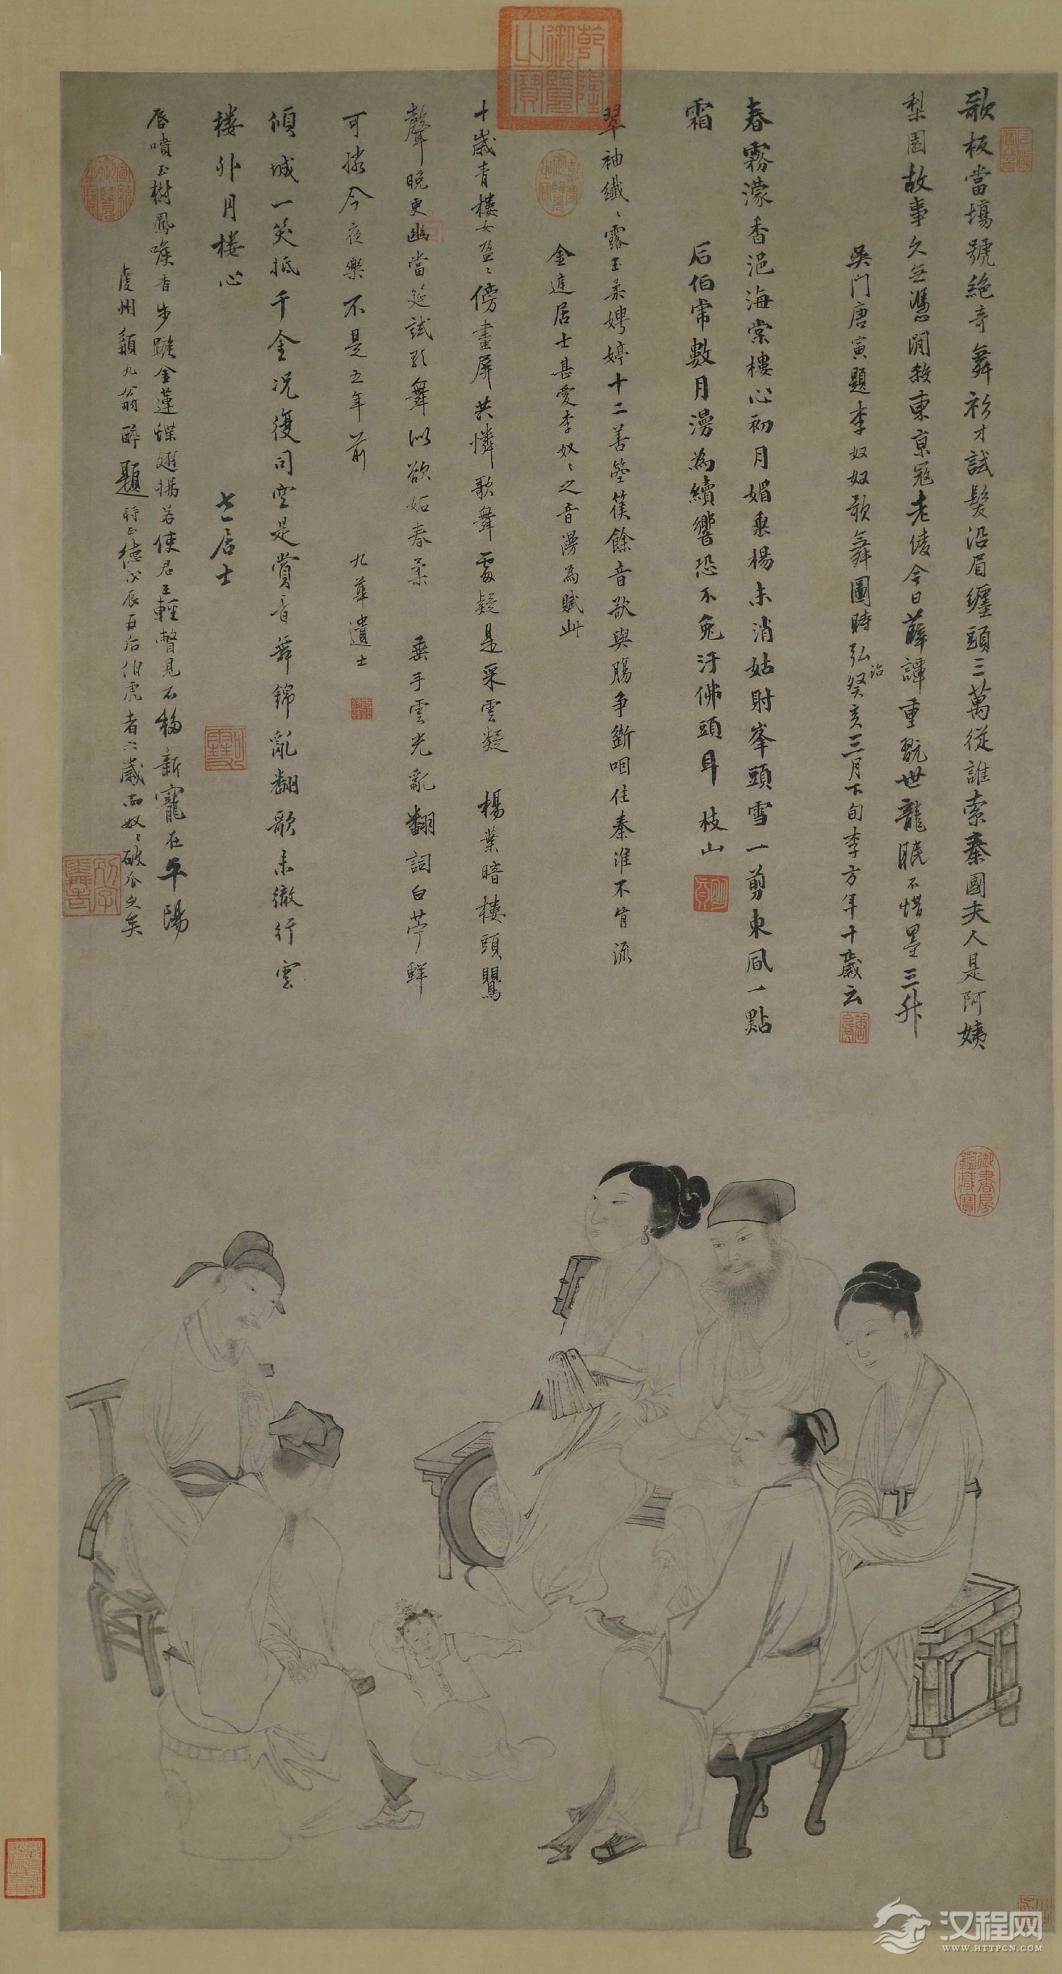 歌板當場號絕奇舞衫才試髮沿眉纏頭三萬從誰索秦國夫人是阿姨
梨園故事久無憑閒殺東京冠老倰今日薛譚重
世龍眠不惜墨三升
吳門唐寅題李奴奴歌舞圖時弘治癸亥三月下旬李方年十歲云
春霧濛香浥海棠樓心初月媚垂楊未消姑射峯頭雪一剪東風一點
霜
后伯常數月漫為續響恐不免汙佛頭耳 枝山
翠袖纖纖露玉柔娉婷十二善箜篌餘音欲與腸爭斷咽住秦淮不肯流
金遠居士甚愛李奴奴之音漫為賦此
十歲青樓女盈盈傍畫屏共憐歌舞處疑是采雲凝 楊葉暗樓頭鸎
聲晚更幽當筵試歌舞似欲妬春柔 垂手雲光亂翻詞白苧鮮
可憐今夜樂不是五年前 九華遺士
傾城一笑抵千金况復司空是賞音舞錦亂翻歌未徹行雲
樓外月樓心
七居士
唇噴玉樹鳳喉香步蹴金蓮蝶翅揚若使君王輕瞥見不移新寵在平陽
虔州顛九翁醉題時正德戊辰五后伯虎者六歲而奴奴破瓜之矣
乾隆御覽之寶
御書房鑑藏寶
汉程网
WWW.HTTPCN.COM